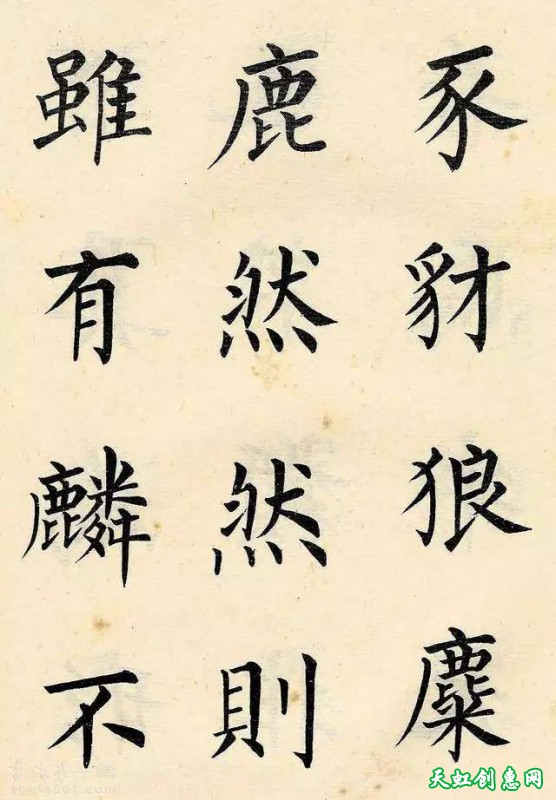 豕豺狼麋
鹿然然則
雖有麟不
天虹创惠网